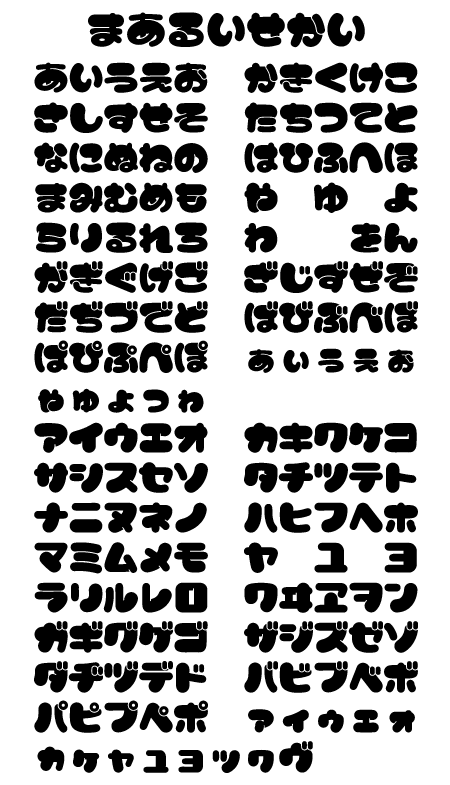 まあるいせかい
あいうえお かきくけこ
さしすせそ たちつてと
なにぬねの はひふへほ
まみむめも や ゆ よ
らりるれろ わ をん
がぎぐげご ざじずぜぞ
だぢづでど ばびぶべぼ
ぱぴぷぺぽ ぁぃぅぇぉ
ゃゅょっゎ
アイウエオ カキクケコ
サシスセソ タチツテト
ナニヌネノ ハヒフヘホ
マミムメモ ヤ ユ ヨ
ラリルレロ ワヰヱヲン
ガギグゲゴ ザジズゼゾ
ダヂヅデド バビブベボ
パピプペポ ァィゥェォ
ヵヶャュョッヮヴ